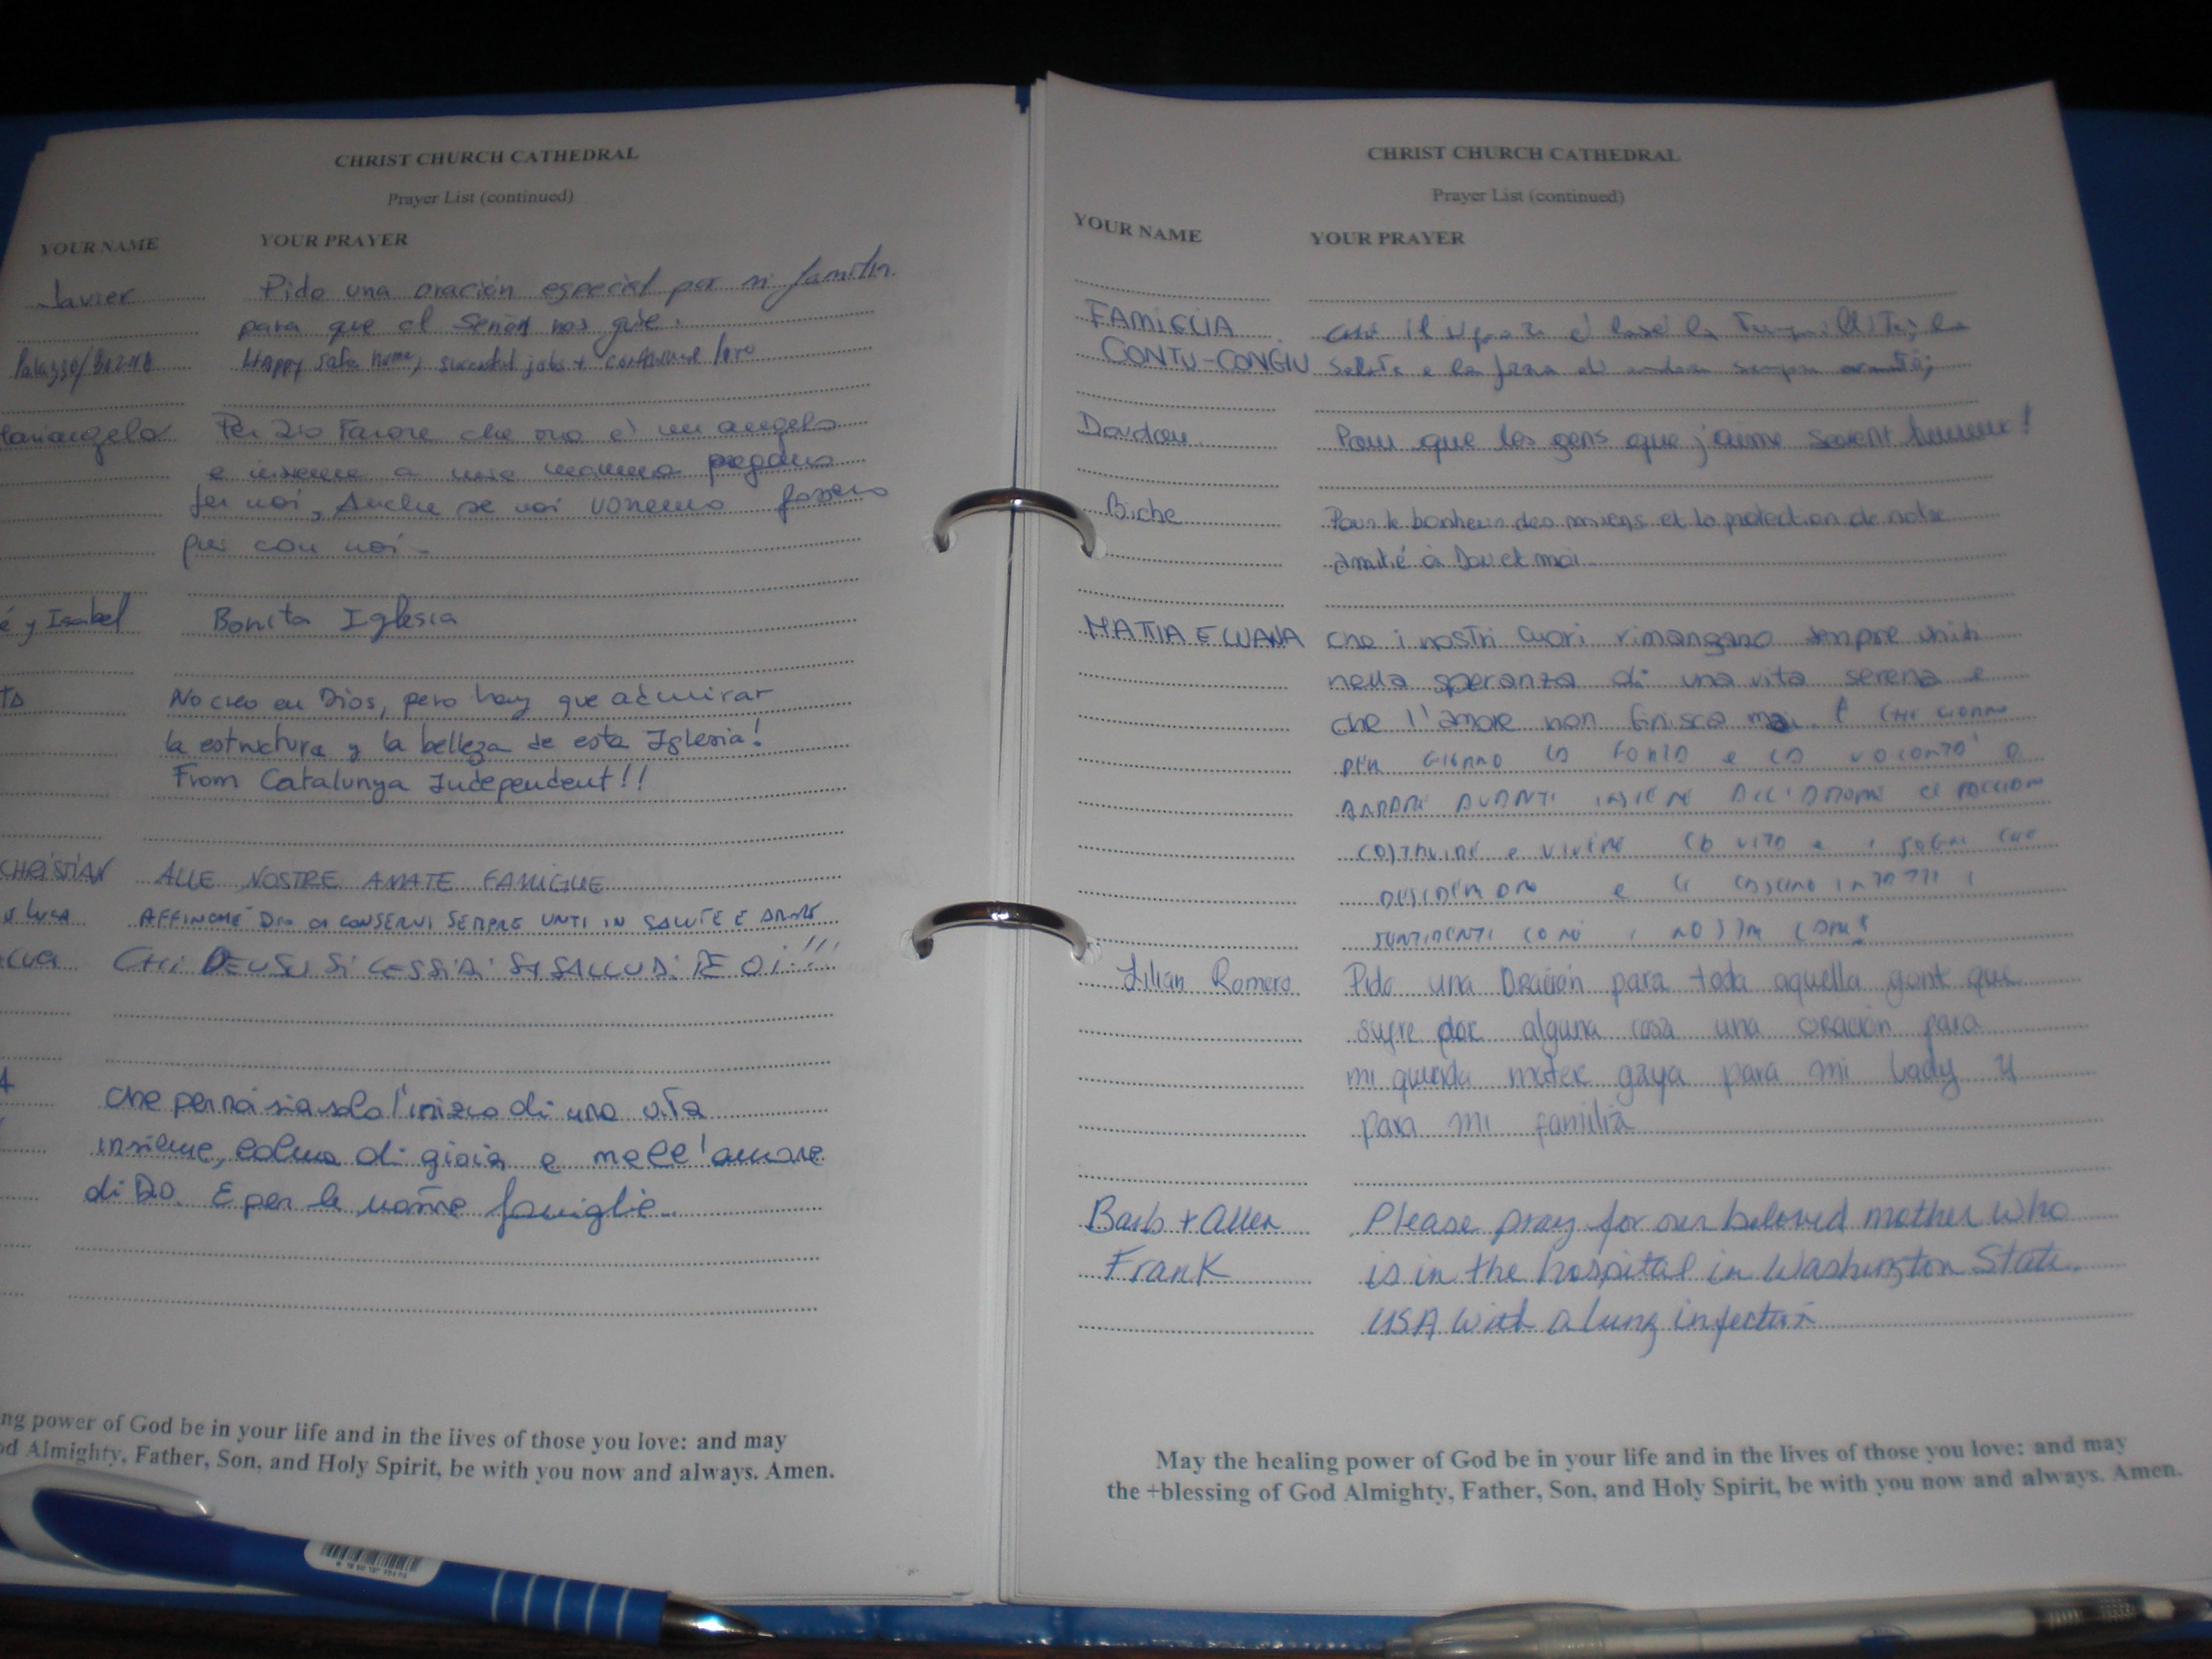 CHRIST CHURCH CATHEDRAL
Prayer List (continued)
YOUR NAME YOUR PRAYER
Javier Pido una oración especial por mi familia.
para que el Señor nos guie.
Happy safe home, successful jobs + continued love
Per zio che ora è un angelo
e insieme a mia mamma pregano
per noi, Anche se noi vorremmo fossero
qui con noi.
é y Isabel Bonita Iglesia
No creo en Dios, pero hay que admirar
la estructura y la belleza de esta Iglesia!
From Catalunya Independent!!
CHRISTIAN ALLE NOSTRE AMATE FAMIGLIE
LUCA AFFINCHÉ DIO CI CONSERVI SEMPRE UNITI IN SALUTE E AMORE
CHI DEUSU SI
che per noi sia solo l'inizio di una vita
insieme, colma di gioia e nell'amore
di Dio. E per le nostre famiglie.
ng power of God be in your life and in the lives of those you love: and may
od Almighty, Father, Son, and Holy Spirit, be with you now and always. Amen.
CHRIST CHURCH CATHEDRAL
Prayer List (continued)
YOUR NAME YOUR PRAYER
FAMIGLIA
CONTU-CONGIU salute e la forza di andare sempre
Doudou Pour que les gens que j'aime soient heureux!
Biche Pour le bonheur des miens et la protection de notre
amitié à Dou et moi.
MATTIA E LUANA che i nostri cuori rimangano sempre uniti
nella speranza di una vita serena e
che l'amore non finisca mai. E CHE GIORNO
PER GIORNO LA FORZA E LA VOLONTÀ DI
ANDARE AVANTI INSIEME
COSTRUIRE E VIVERE LA VITA E I SOGNI CHE
DESIDERANO E
SENTIMENTI COME I NOSTRI
Lilian Romero Pido una Oración para toda aquella gente que
sufre por alguna cosa una oración para
mi querida para mi Lady y
para mi familia
Barb + Allen Please pray for our beloved mother who
Frank is in the hospital in Washington State.
USA with a lung infection
May the healing power of God be in your life and in the lives of those you love: and may
the +blessing of God Almighty, Father, Son, and Holy Spirit, be with you now and always. Amen.